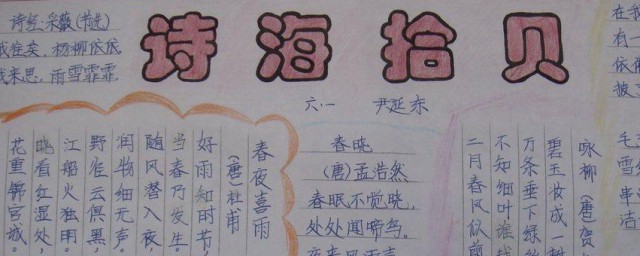 诗经.采薇(节选)
我往矣.杨柳依依
我来思.雨雪霏霏.
诗海拾贝
六.一 尹延东
春夜喜雨
(唐)杜甫
好雨知时节,
当春乃发生。
随风潜入夜,
润物细无声。
野径云俱黑,
江船火独明。
晓看红湿处,
花重锦宫城。
春晓
(唐)孟浩然
春眠不觉晓,
处处闻啼鸟。
夜来风雨声
咏柳(唐)贺
碧玉妆成一树
万条垂下绿丝
不知细叶谁裁
二月春风似剪
在我
有一
依
披
毛
雪
串
洁